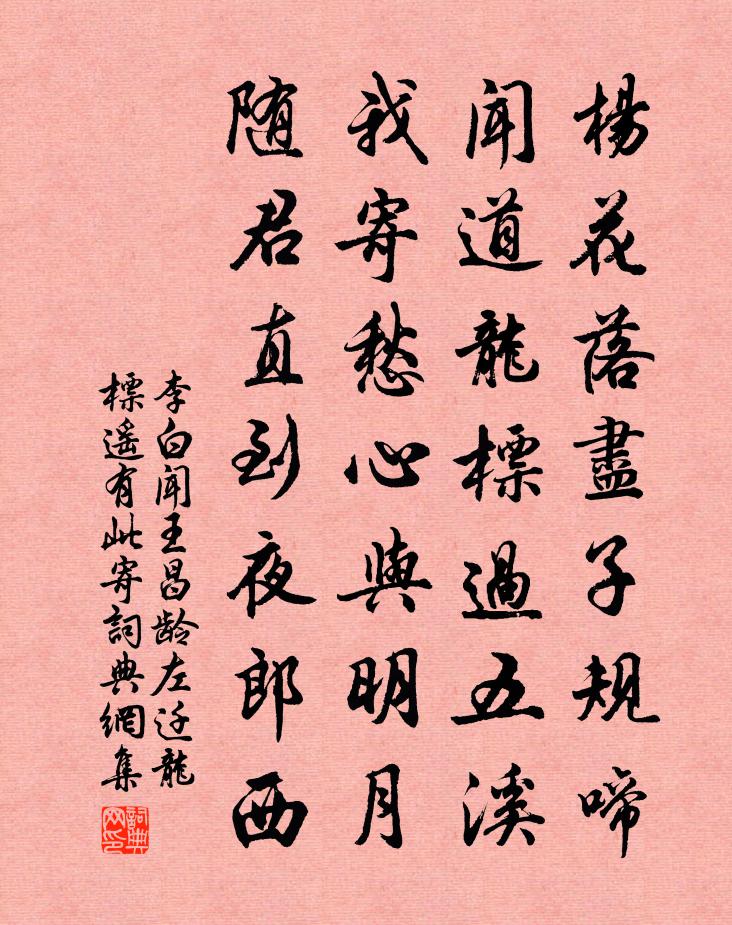 楊花落盡子規啼
聞道龍標過五溪
我寄愁心與明月
随君直到夜郎西
李白聞王昌龄左迁龍
標遥有此寄詞典網集
詞典网印